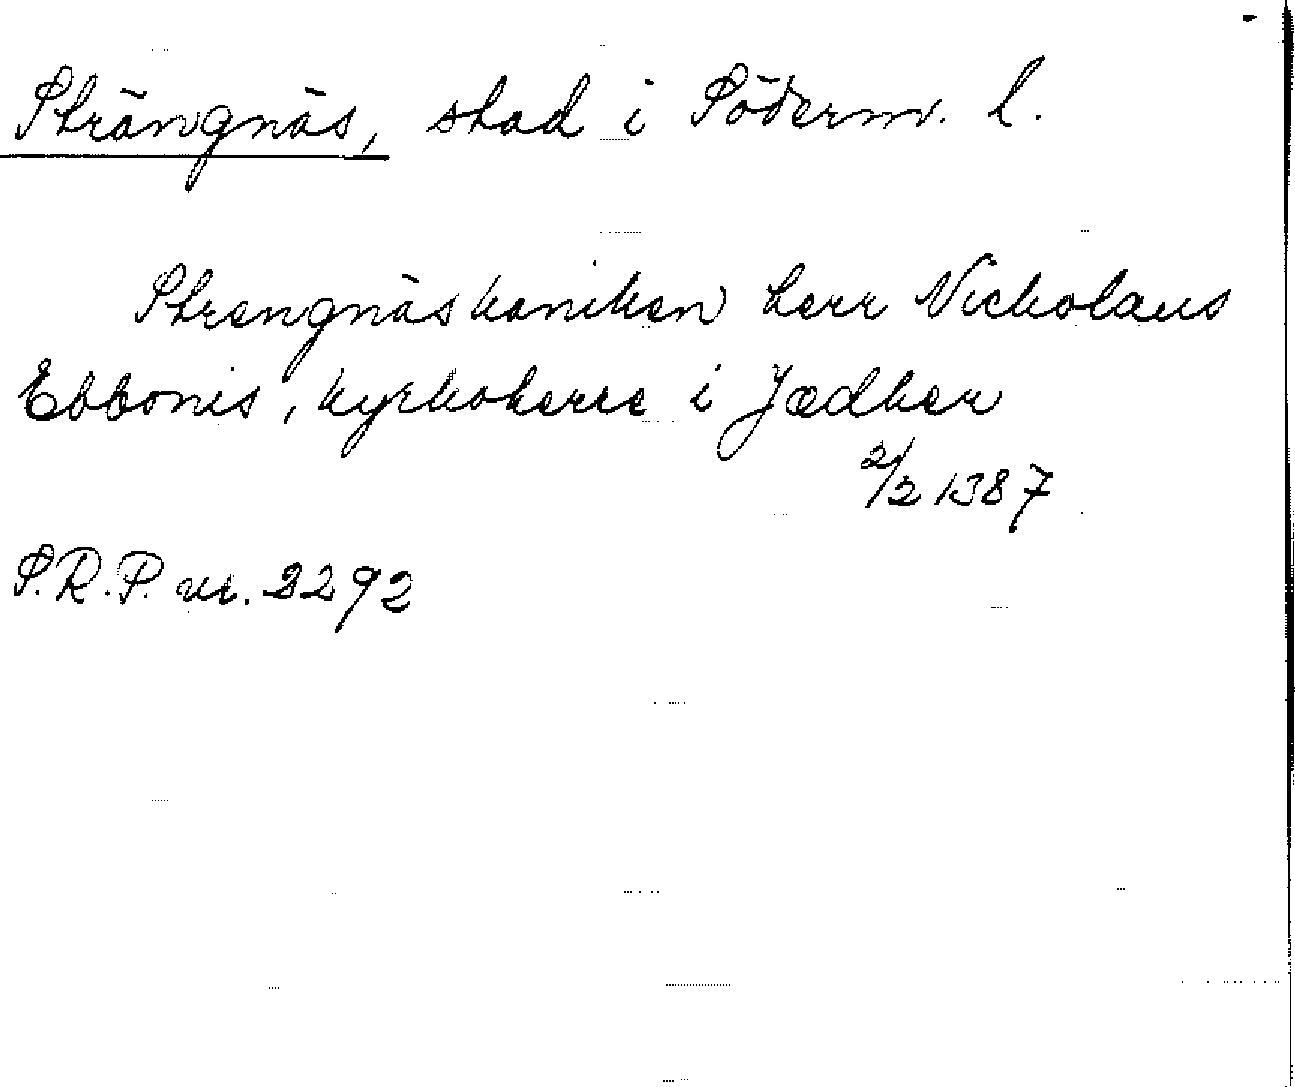 Strängnäs, stad i Söderm. l.
Strengnäskaniken herr Nickolaus
Ebbonis, kyrkoherre i Jædher
2/2 1387
S.R.P. nr. 2292